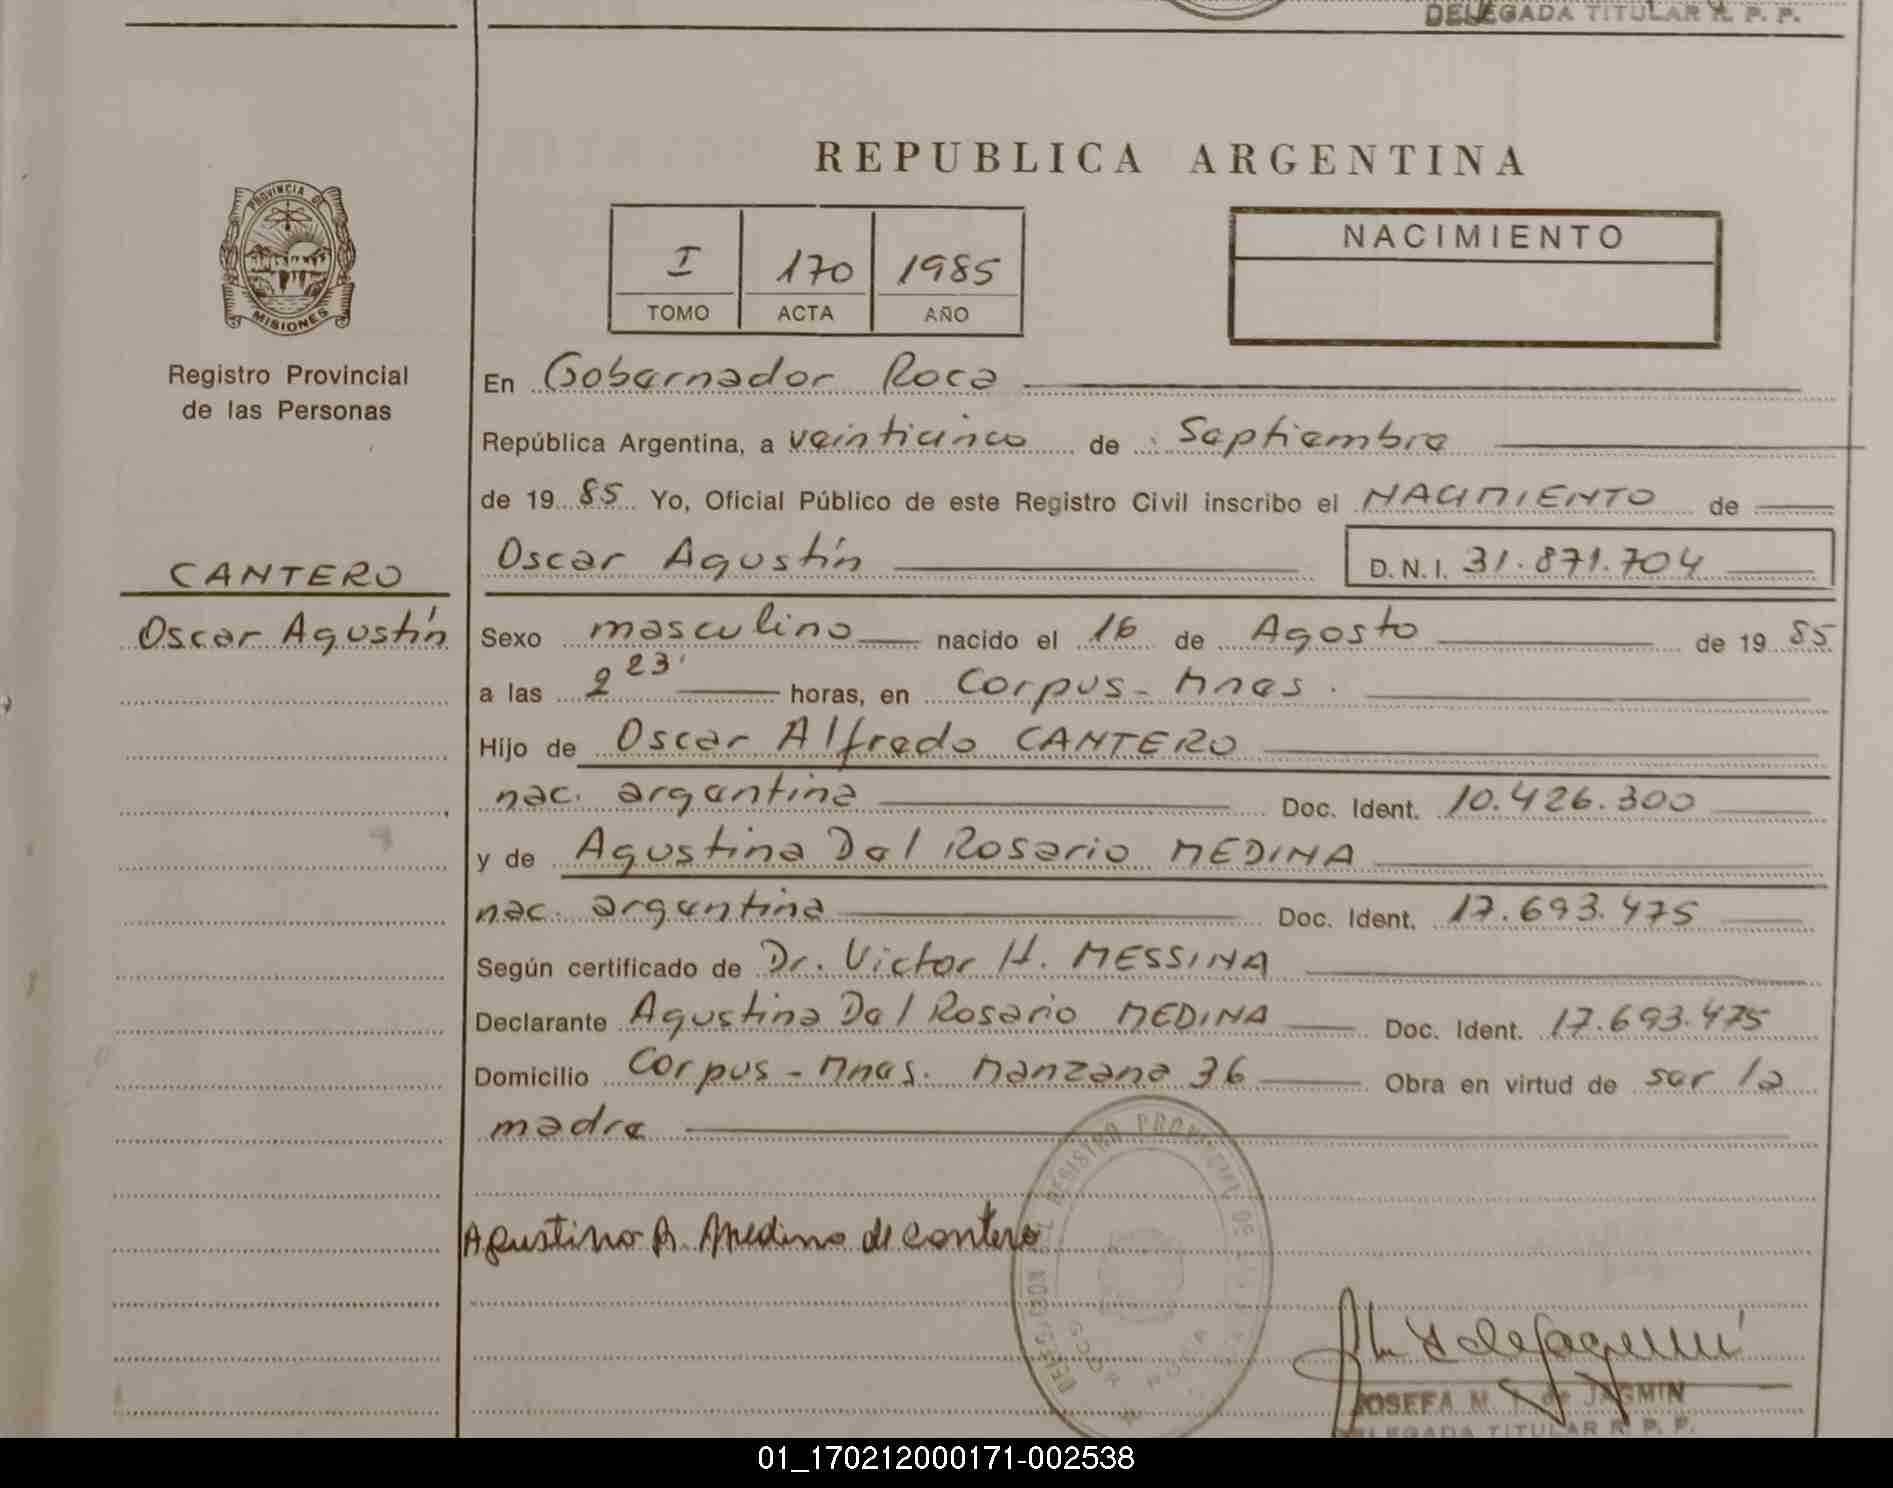 DELEGADA TITULAR R. P. P.
REPUBLICA ARGENTINA
PROVINCIA DE
MISIONES
Registro Provincial
de las Personas
I 170 1985
TOMO ACTA AÑO
NACIMIENTO
En Gobernador Roca
República Argentina, a veinticinco de Septiembre
de 19 85 Yo, Oficial Público de este Registro Civil inscribo el NACIMIENTO de
CANTERO
Oscar Agustín
Oscar Agustín D.N.I. 31.871.704
Sexo masculino nacido el 16 de Agosto de 19 85
a las 2 23' horas, en Corpus - Mnes.
Hijo de Oscar Alfredo CANTERO
nac. argentina Doc. Ident. 10.426.300
y de Agustina Del Rosario MEDINA
nac. argentina Doc. Ident. 17.693.475
Según certificado de Dr. Victor H. MESSINA
Declarante Agustina Del Rosario MEDINA Doc. Ident. 17.693.475
Domicilio Corpus - Mnes. Manzana 36 Obra en virtud de ser la
madre
Agustina R. Medina de Cantero
DELEGACION DEL REGISTRO PROVINCIAL DE
GDOR ROCA
JOSEFA M. de JAGMIN
DELEGADA TITULAR R. P. P.
01_170212000171-002538